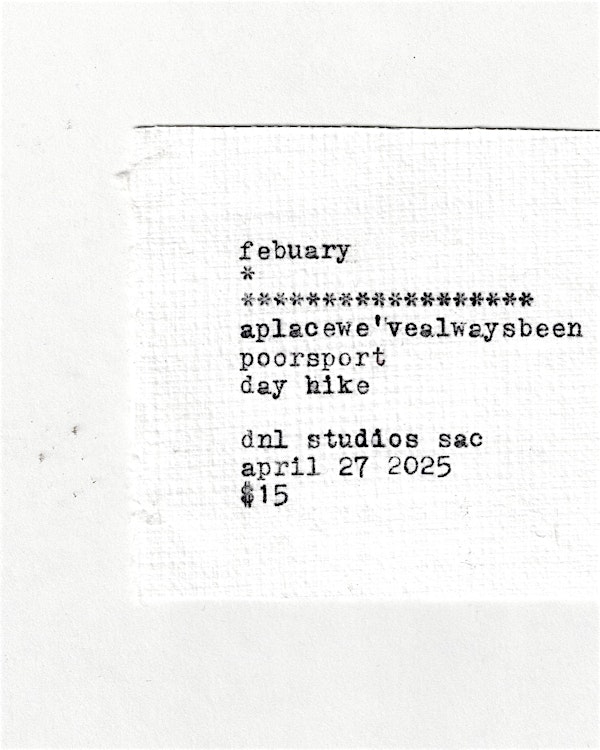 febuary
*
******************
aplacewe'vealwaysbeen
poorsport
day hike
dnl studios sac
april 27 2025
$15